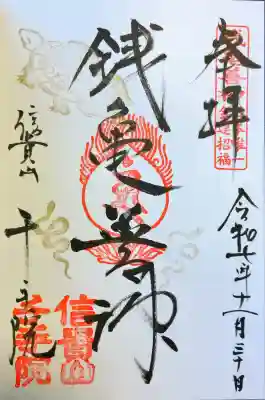 奉拝
招福
令和七年十一月三十日
銭亀善神
信貴山
千手院
信貴山
千手院